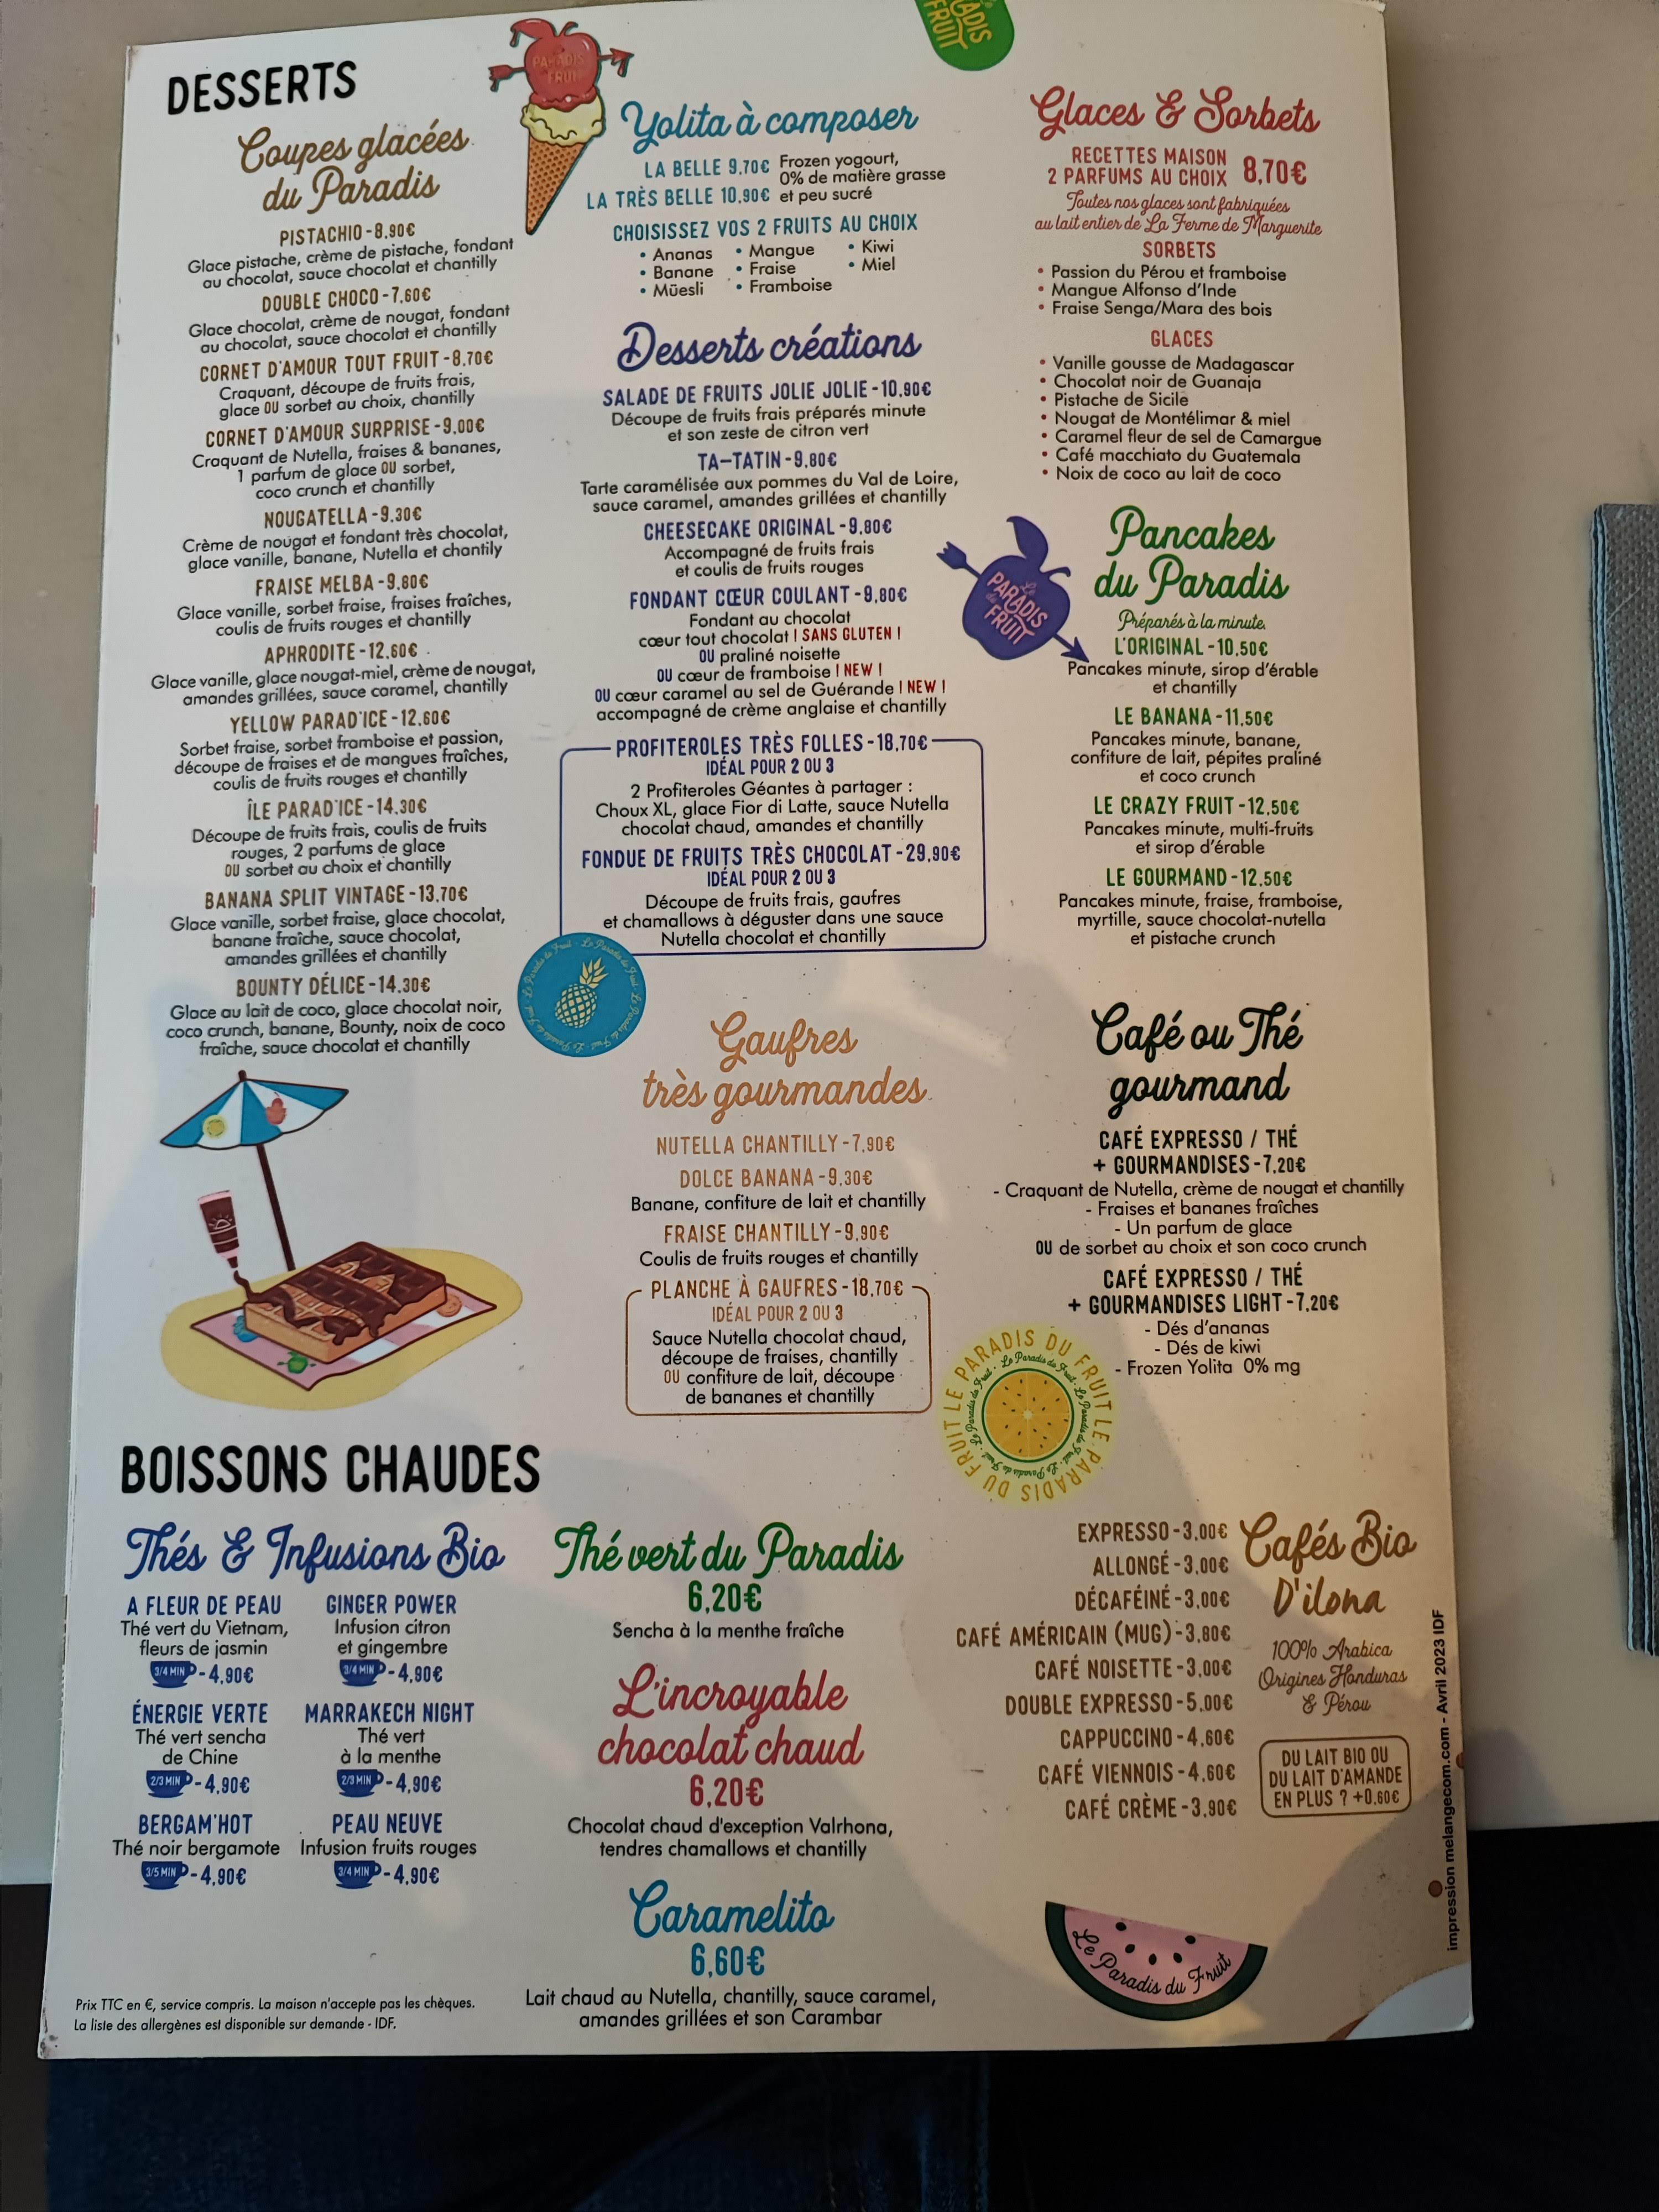 DESSERTS
Coupes glacées
du Paradis
PISTACHIO - 8.90€
Glace pistache, crème de pistache, fondant
au chocolat, sauce chocolat et chantilly
DOUBLE CHOCO - 7.60€
Glace chocolat, crème de nougat, fondant
au chocolat, sauce chocolat et chantilly
CORNET D'AMOUR TOUT FRUIT - 8.70€
Craquant, découpe de fruits frais,
glace OU sorbet au choix, chantilly
CORNET D'AMOUR SURPRISE - 9.00€
Craquant de Nutella, fraises & bananes,
1 parfum de glace OU sorbet,
coco crunch et chantilly
NOUGATELLA - 9.30€
Crème de nougat et fondant très chocolat,
glace vanille, banane, Nutella et chantily
FRAISE MELBA - 9.80€
Glace vanille, sorbet fraise, fraises fraîches,
coulis de fruits rouges et chantilly
APHRODITE - 12.60€
Glace vanille, glace nougat-miel, crème de nougat,
amandes grillées, sauce caramel, chantilly
YELLOW PARAD'ICE - 12.60€
Sorbet fraise, sorbet framboise et passion,
découpe de fraises et de mangues fraîches,
coulis de fruits rouges et chantilly
ÎLE PARAD'ICE - 14.30€
Découpe de fruits frais, coulis de fruits
rouges, 2 parfums de glace
OU sorbet au choix et chantilly
BANANA SPLIT VINTAGE - 13.70€
Glace vanille, sorbet fraise, glace chocolat,
banane fraîche, sauce chocolat,
amandes grillées et chantilly
BOUNTY DÉLICE - 14.30€
Glace au lait de coco, glace chocolat noir,
coco crunch, banane, Bounty, noix de coco
fraîche, sauce chocolat et chantilly
PARADIS
FRUIT
Yolita à composer
LA BELLE 9.70€
LA TRÈS BELLE 10.90€
Frozen yogourt,
0% de matière grasse
et peu sucré
CHOISISSEZ VOS 2 FRUITS AU CHOIX
• Ananas • Mangue • Kiwi
• Banane • Fraise • Miel
• Müesli • Framboise
Desserts créations
SALADE DE FRUITS JOLIE JOLIE - 10.90€
Découpe de fruits frais préparés minute
et son zeste de citron vert
TA-TATIN - 9.80€
Tarte caramélisée aux pommes du Val de Loire,
sauce caramel, amandes grillées et chantilly
CHEESECAKE ORIGINAL - 9.80€
Accompagné de fruits frais
et coulis de fruits rouges
FONDANT CŒUR COULANT - 9.80€
Fondant au chocolat
cœur tout chocolat ! SANS GLUTEN !
OU praliné noisette
OU cœur de framboise ! NEW !
OU cœur caramel au sel de Guérande ! NEW !
accompagné de crème anglaise et chantilly
PROFITEROLES TRÈS FOLLES - 18,70€
IDÉAL POUR 2 OU 3
2 Profiteroles Géantes à partager :
Choux XL, glace Fior di Latte, sauce Nutella
chocolat chaud, amandes et chantilly
FONDUE DE FRUITS TRÈS CHOCOLAT - 29,90€
IDÉAL POUR 2 OU 3
Découpe de fruits frais, gaufres
et chamallows à déguster dans une sauce
Nutella chocolat et chantilly
Gaufres
très gourmandes
NUTELLA CHANTILLY - 7,90€
DOLCE BANANA - 9,30€
Banane, confiture de lait et chantilly
FRAISE CHANTILLY - 9,90€
Coulis de fruits rouges et chantilly
PLANCHE À GAUFRES - 18,70€
IDÉAL POUR 2 OU 3
Sauce Nutella chocolat chaud,
découpe de fraises, chantilly
OU confiture de lait, découpe
de bananes et chantilly
ADIS
FRUIT
Glaces & Sorbets
RECETTES MAISON
2 PARFUMS AU CHOIX 8,70€
Toutes nos glaces sont fabriquées
au lait entier de La Ferme de Marguerite
SORBETS
• Passion du Pérou et framboise
• Mangue Alfonso d'Inde
• Fraise Senga/Mara des bois
GLACES
• Vanille gousse de Madagascar
• Chocolat noir de Guanaja
• Pistache de Sicile
• Nougat de Montélimar & miel
• Caramel fleur de sel de Camargue
• Café macchiato du Guatemala
• Noix de coco au lait de coco
Le
PARADIS
du
FRUIT
Pancakes
du Paradis
Préparés à la minute.
L'ORIGINAL - 10,50€
Pancakes minute, sirop d'érable
et chantilly
LE BANANA - 11,50€
Pancakes minute, banane,
confiture de lait, pépites praliné
et coco crunch
LE CRAZY FRUIT - 12,50€
Pancakes minute, multi-fruits
et sirop d'érable
LE GOURMAND - 12,50€
Pancakes minute, fraise, framboise,
myrtille, sauce chocolat-nutella
et pistache crunch
Café ou Thé
gourmand
CAFÉ EXPRESSO / THÉ
+ GOURMANDISES - 7,20€
- Craquant de Nutella, crème de nougat et chantilly
- Fraises et bananes fraîches
- Un parfum de glace
OU de sorbet au choix et son coco crunch
CAFÉ EXPRESSO / THÉ
+ GOURMANDISES LIGHT - 7,20€
- Dés d'ananas
- Dés de kiwi
- Frozen Yolita 0% mg
LE PARADIS DU FRUIT LE PARADIS DU FRUIT
Le Paradis du Fruit · Le Paradis du Fruit
BOISSONS CHAUDES
Thés & Infusions Bio
A FLEUR DE PEAU
Thé vert du Vietnam,
fleurs de jasmin
3/4 MIN - 4,90€
GINGER POWER
Infusion citron
et gingembre
3/4 MIN - 4,90€
ÉNERGIE VERTE
Thé vert sencha
de Chine
2/3 MIN - 4,90€
MARRAKECH NIGHT
Thé vert
à la menthe
2/3 MIN - 4,90€
BERGAM'HOT
Thé noir bergamote
3/5 MIN - 4,90€
PEAU NEUVE
Infusion fruits rouges
3/4 MIN - 4,90€
Thé vert du Paradis
6,20€
Sencha à la menthe fraîche
L'incroyable
chocolat chaud
6,20€
Chocolat chaud d'exception Valrhona,
tendres chamallows et chantilly
Caramelito
6,60€
Lait chaud au Nutella, chantilly, sauce caramel,
amandes grillées et son Carambar
EXPRESSO - 3,00€
ALLONGÉ - 3,00€
DÉCAFÉINÉ - 3,00€
CAFÉ AMÉRICAIN (MUG) - 3,80€
CAFÉ NOISETTE - 3,00€
DOUBLE EXPRESSO - 5,00€
CAPPUCCINO - 4,60€
CAFÉ VIENNOIS - 4,60€
CAFÉ CRÈME - 3,90€
Cafés Bio
D'ilona
100% Arabica
Origines Honduras
& Pérou
DU LAIT BIO OU
DU LAIT D'AMANDE
EN PLUS ? +0,60€
Le Paradis du Fruit
impression melangecom.com - Avril 2023 IDF
Prix TTC en €, service compris. La maison n'accepte pas les chèques.
La liste des allergènes est disponible sur demande - IDF.